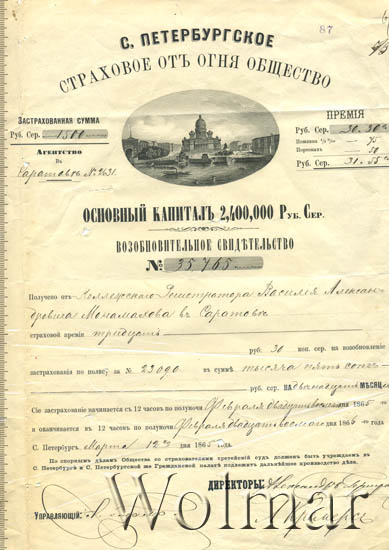 87
С. ПЕТЕРБУРГСКОЕ
СТРАХОВОЕ ОТЪ ОГНЯ ОБЩЕСТВО
ЗАСТРАХОВАННАЯ СУММА
Руб. Сер. 1500
АГЕНТСТВО
Въ
Саратовѣ № 2631.
ПРЕМІЯ
Руб. Сер. 30. 30
75
50
Руб. Сер. 31. 55
ОСНОВНЫЙ КАПИТАЛЪ 2,400,000 РУБ. СЕР.
ВОЗОБНОВИТЕЛЬНОЕ СВИДѢТЕЛЬСТВО
№ 35765
Получено отъ Коллежскаго Регистратора Василія Алексан-
дровича Мономахова въ Саратовѣ
страховой преміи тридцать
руб. 30 коп. сер. на возобновленіе
застрахованія по полису за № 23090 въ суммѣ тысяча пять сотъ
руб. сер. на двѣнадцать мѣсяцевъ
Сіе застрахованіе начинается съ 12 часовъ по полуночи Февраля двадцать 1865
и оканчивается въ 12 часовъ по полуночи Февраля двадцать восьмаго 1866 года.
С. Петербургъ, Марта 12 дня 1865 года.
По спорнымъ дѣламъ Общества со страхователями третейскій судъ долженъ быть учреждаемъ въ
С. Петербургѣ и С. Петербургской же Гражданской палатѣ подлежитъ дальнѣйшее производство дѣла.
ДИРЕКТОРЫ:
УПРАВЛЯЮЩІЙ:
Wolmar